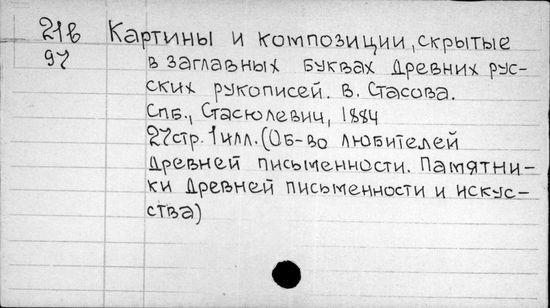 21в Картины и композиции, скрытые
97 в заглавных буквах древних рус-
ских рукописей. В. Стасова.
Спб., Стасюлевич, 1884
27стр. 1 илл. (Об-во любителей
древней письменности. Памятни-
ки древней письменности и искус-
ства)